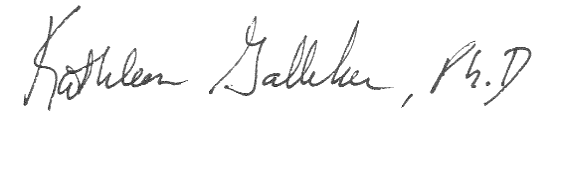 Kathleen Galleher, Ph.D